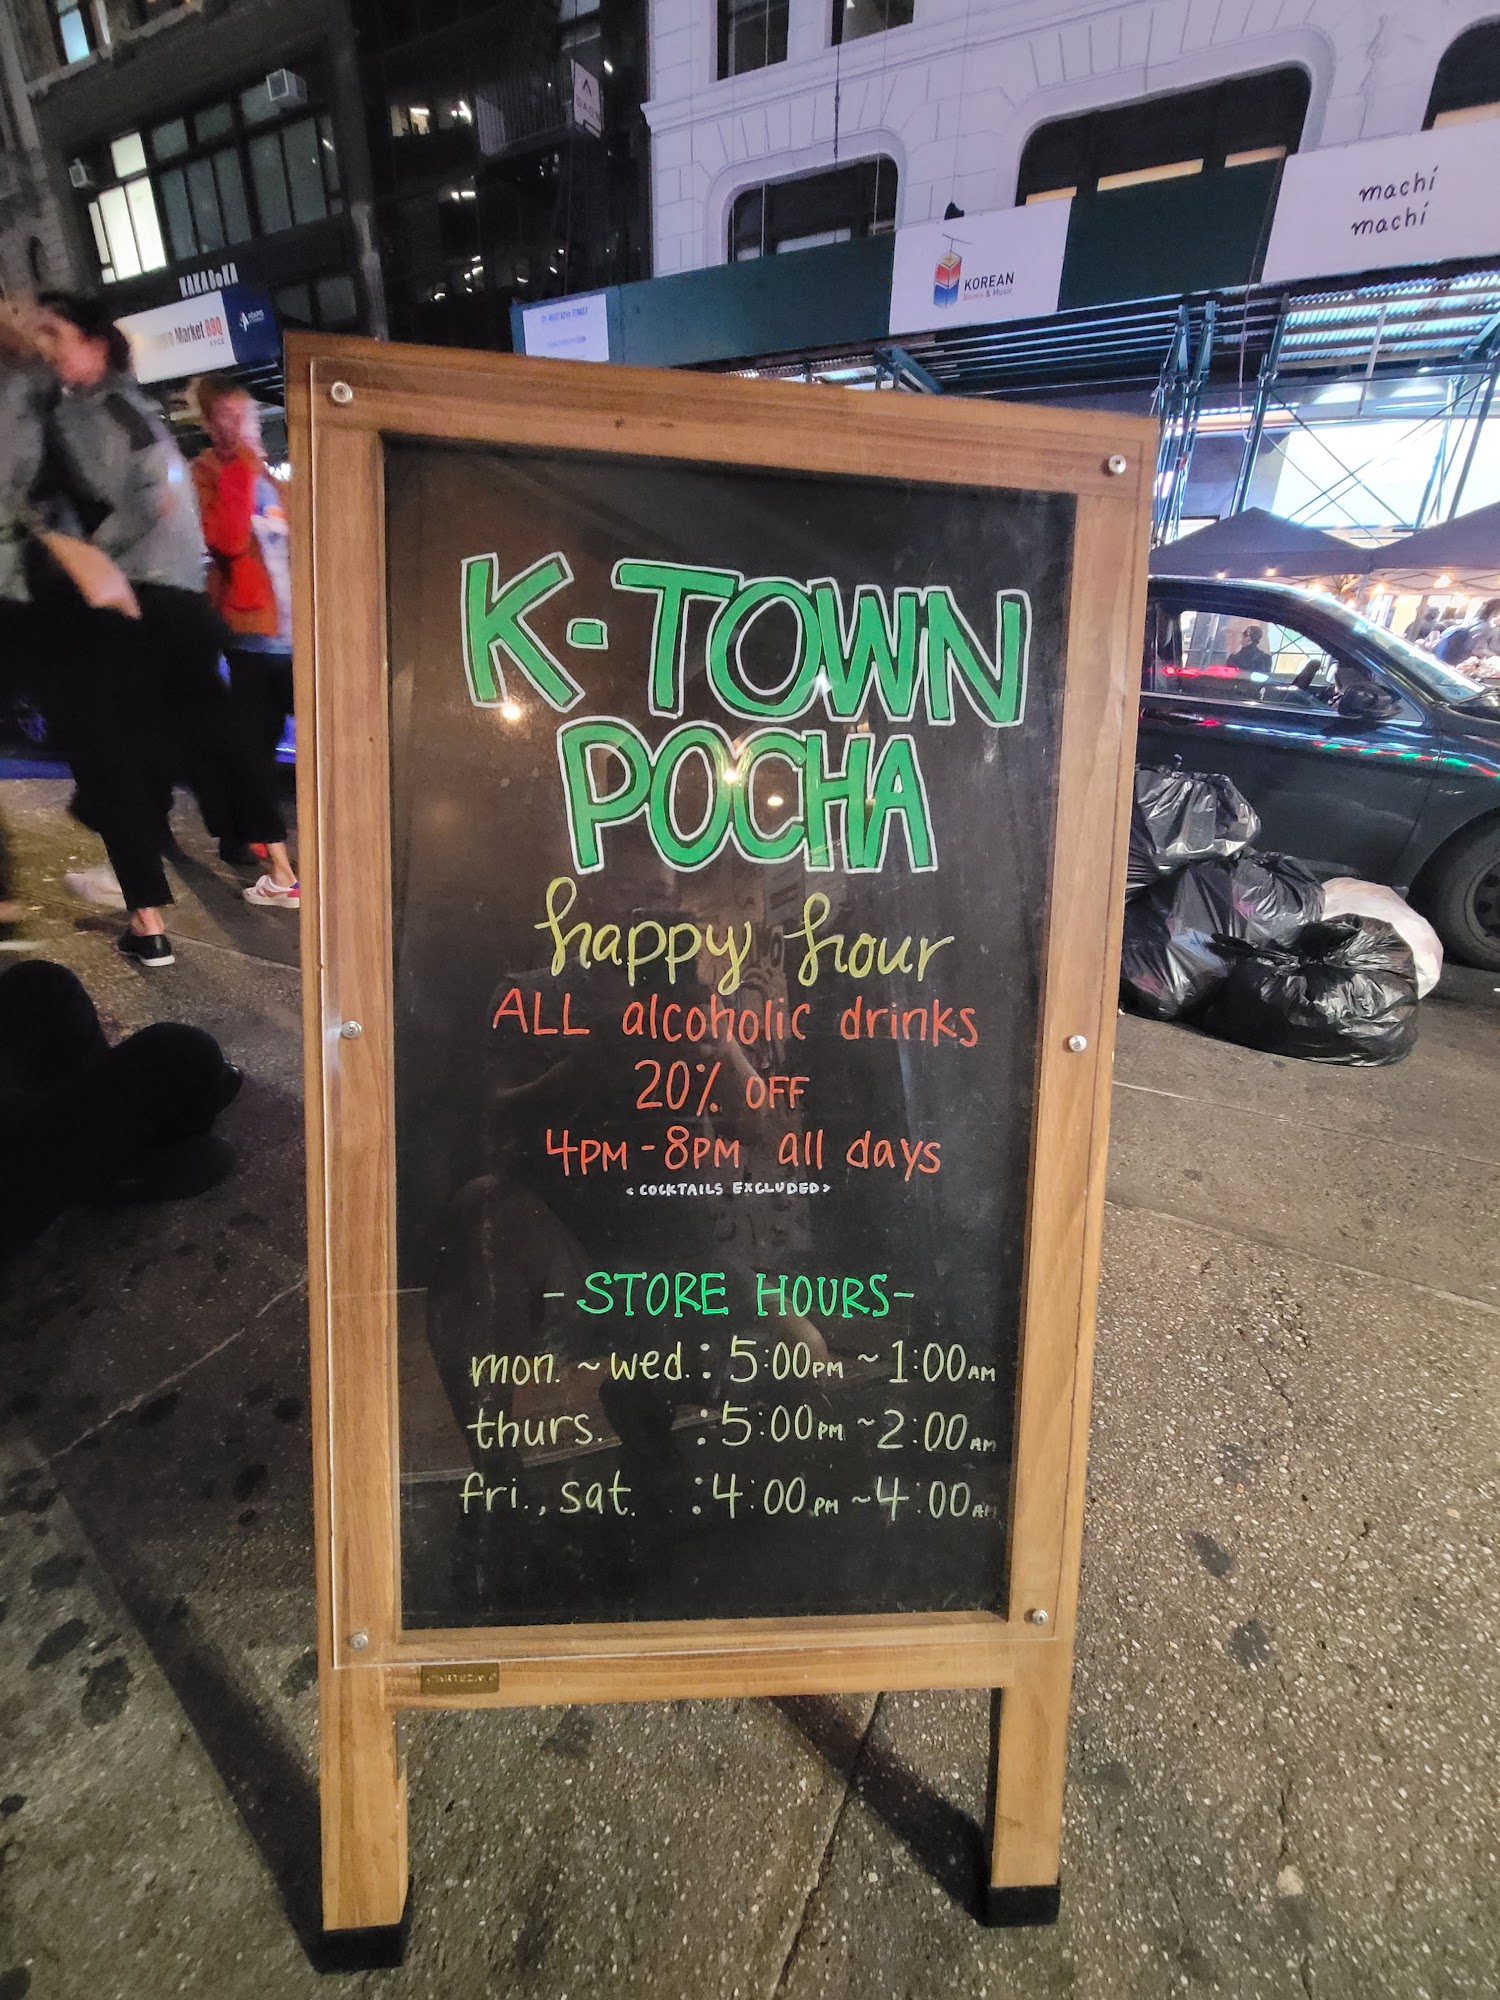 machi
machi
KOREAN
Books & Music
Market BBQ
K-TOWN
POCHA
happy hour
ALL alcoholic drinks
20% OFF
4PM-8PM all days
<COCKTAILS EXCLUDED>
-STORE HOURS-
mon. ~ wed. : 5:00PM ~ 1:00AM
thurs. : 5:00PM ~ 2:00AM
fri., sat. : 4:00PM ~ 4:00AM